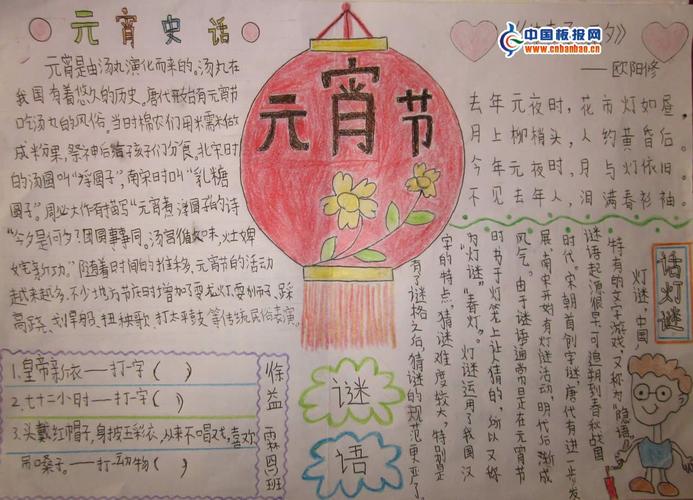 元宵史话
元宵是由汤丸演化而来的。汤丸在
我国有着悠久的历史。唐代开始有元宵节
吃汤丸的风俗。当时棉农们用米糯米做
成米果,祭神后給孩子们分食。北宋时
的汤圆叫“浮圆子”,南宋时叫“乳糖
圆子”。周必大作有描写“元宵煮浮圆子的诗
“今夕是何夕?团圆事事同。汤官循旧味,灶婢
诧新功。”随着时间的推移,元宵节的活动
越来越多,不少地方节庆时增加了耍龙灯、耍狮子、踩
高跷、划旱船、扭秧歌、打太平鼓等传统民俗表演。
元宵节
中国板报网
www.cnbanbao.cn
夕》
——欧阳修
去年元夜时,花市灯如昼
月上柳梢头,人约黄昏后。
今年元夜时,月与灯依旧
不见去年人,泪满春衫袖。
话灯谜
灯谜,中国
特有的文字游戏,又称为“隐语”。
谜语起源很早,可追朔到春秋战国
时代。宋朝首创字谜,唐代有进一步发
展,南宋开始有灯谜活动,明代后渐成
风气。由于谜语通常是在元宵节
时书于灯笼上让人猜的,所以又称
为“灯谜”“春灯”。灯谜运用了我国汉
字的特点,猜谜难度较大,特别是
有了谜格之后,猜谜的规范更严了。
1.皇帝新衣——打一字( )
2.七十二小时——打一字( )
3.头戴红帽子,身披五彩衣,从来不唱戏,喜欢
吊嗓子。——打一动物( )
徐益霖
四班
谜
语